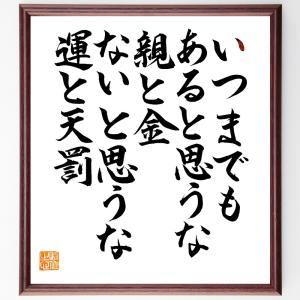 いつまでも
あると思うな
親と金
ないと思うな
運と天罰